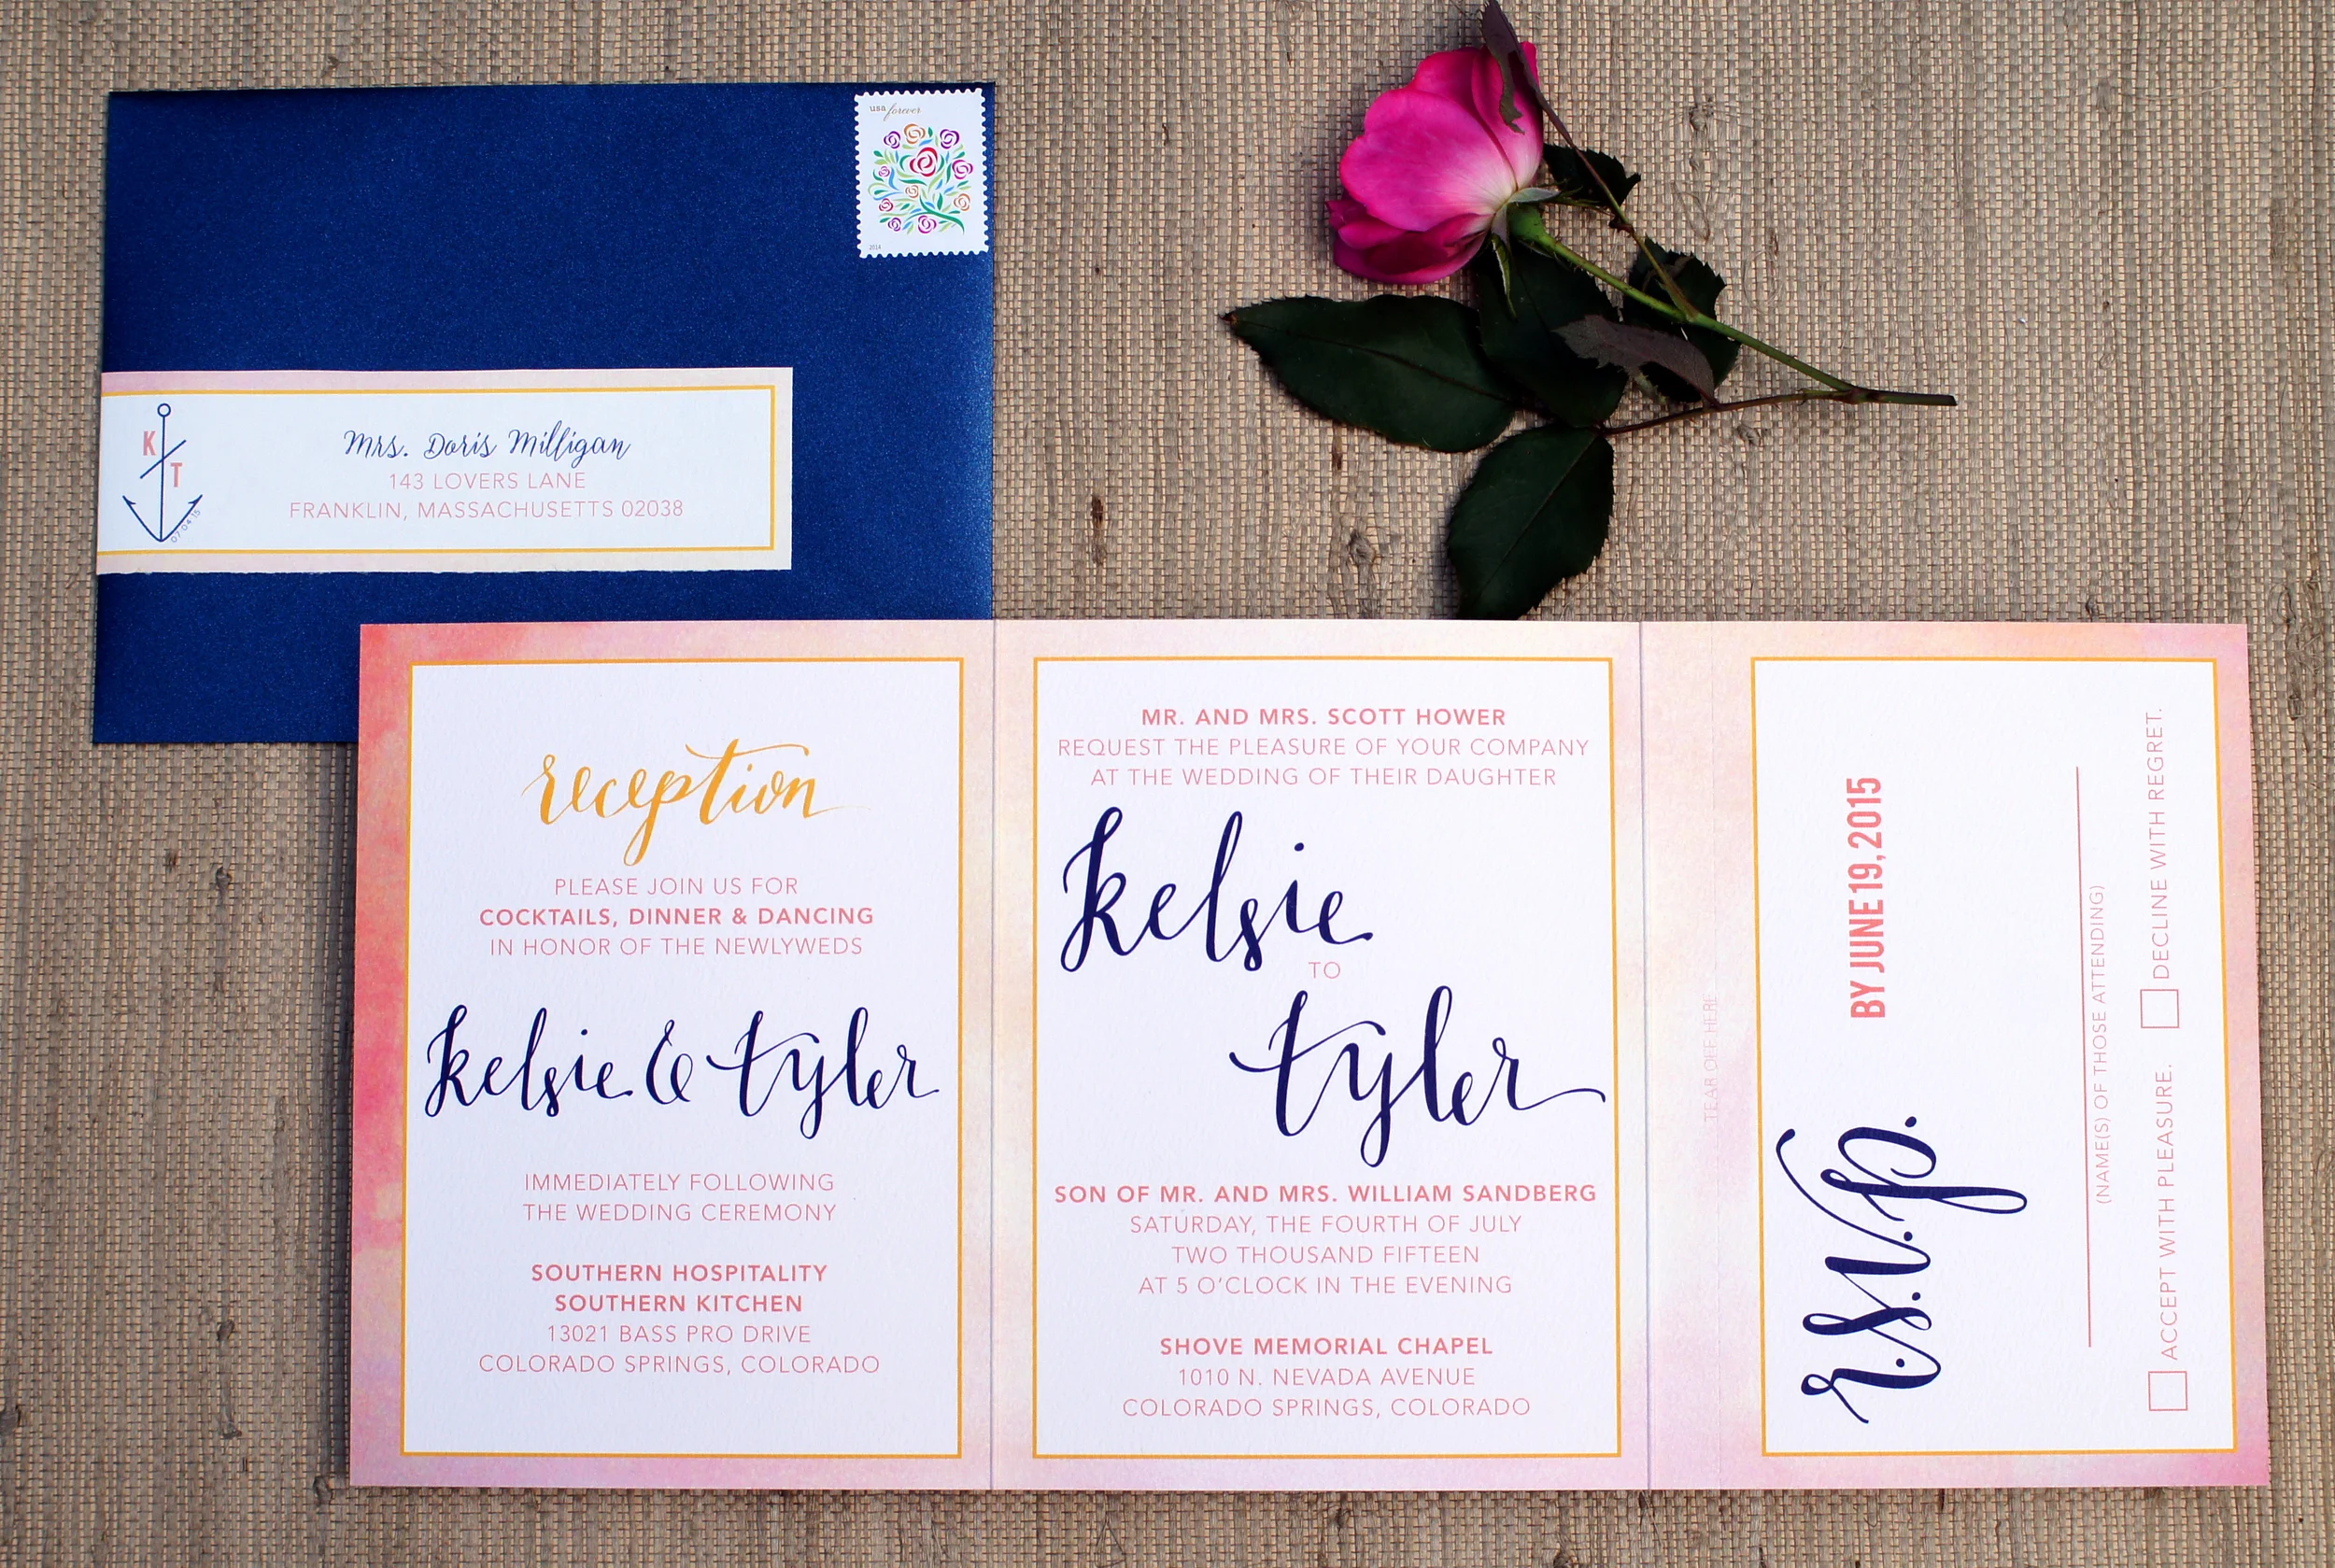 usa forever
2014
K
T
07.04.15
Mrs. Doris Milligan
143 LOVERS LANE
FRANKLIN, MASSACHUSETTS 02038
reception
PLEASE JOIN US FOR
COCKTAILS, DINNER & DANCING
IN HONOR OF THE NEWLYWEDS
kelsie & tyler
IMMEDIATELY FOLLOWING
THE WEDDING CEREMONY
SOUTHERN HOSPITALITY
SOUTHERN KITCHEN
13021 BASS PRO DRIVE
COLORADO SPRINGS, COLORADO
MR. AND MRS. SCOTT HOWER
REQUEST THE PLEASURE OF YOUR COMPANY
AT THE WEDDING OF THEIR DAUGHTER
kelsie
TO
tyler
SON OF MR. AND MRS. WILLIAM SANDBERG
SATURDAY, THE FOURTH OF JULY
TWO THOUSAND FIFTEEN
AT 5 O'CLOCK IN THE EVENING
SHOVE MEMORIAL CHAPEL
1010 N. NEVADA AVENUE
COLORADO SPRINGS, COLORADO
TEAR OFF HERE
r.s.v.p.
BY JUNE 19, 2015
(NAME(S) OF THOSE ATTENDING)
ACCEPT WITH PLEASURE.
DECLINE WITH REGRET.